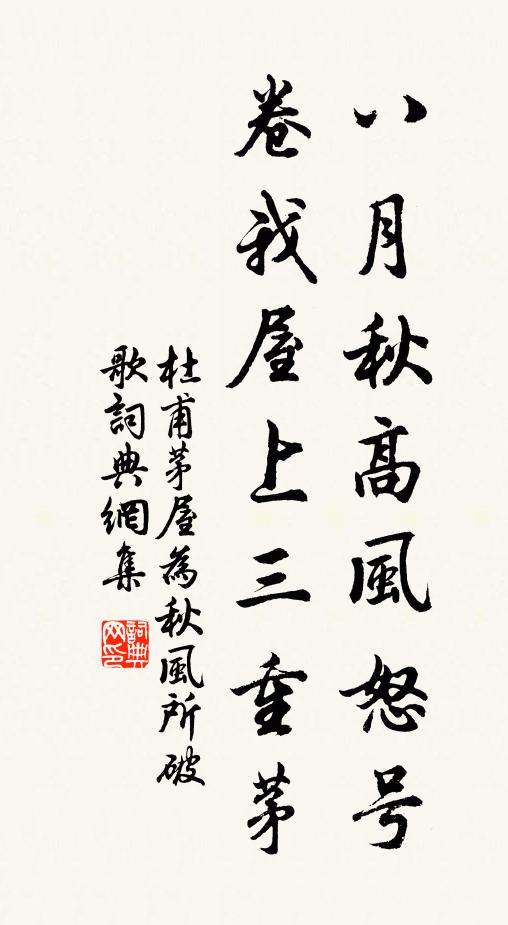 八月秋高風怒号
卷我屋上三重茅
杜甫茅屋為秋風所破
歌詞典網集
詞典
网印